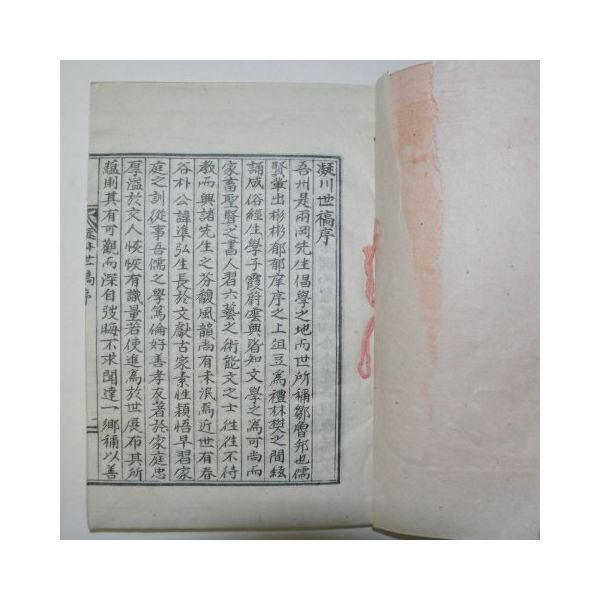 凝川世稿序
吾州是兩岡先生倡學之地而世所稱鄒魯邦也儒
賢輩出彬彬郁郁庠序之上俎豆爲禮林樊之間絃
誦成俗經生學子霞蔚雲興皆知文學之爲可尚而
家畜聖賢之書人習六藝之術能文之士徃徃不待
敎而興諸先生之芬馥風韻尚有未泯焉近世有春
谷朴公諱進弘生長於文獻古家素性穎悟早習家
庭之訓從事吾儒之學篤倫好善孝友著於家庭忠
厚溢於文人恢恢有識量若使進爲於世展布其所
蘊則其有可觀而深自弢晦不求聞達一鄉稱以善
凝川世稿序
一